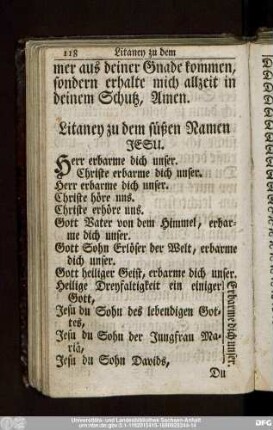 118 Litaney zu dem
mer aus deiner Gnade kommen,
sondern erhalte mich allzeit in
deinem Schutz, Amen.
Litaney zu dem süßen Namen
JESU.
Herr erbarme dich unser.
Christe erbarme dich unser.
Herr erbarme dich unser.
Christe höre uns.
Christe erhöre uns.
Gott Vater von dem Himmel, erbar-
me dich unser.
Gott Sohn Erlöser der Welt, erbarme
dich unser.
Gott heiliger Geist, erbarme dich unser.
Heilige Dreyfaltigkeit ein einiger
Gott,
Jesu du Sohn des lebendigen Got-
tes,
Jesu du Sohn der Jungfrau Ma-
riä,
Jesu du Sohn Davids,
Erbarme dich unser.
Du
DFG
Universitäts- und Landesbibliothek Sachsen-Anhalt